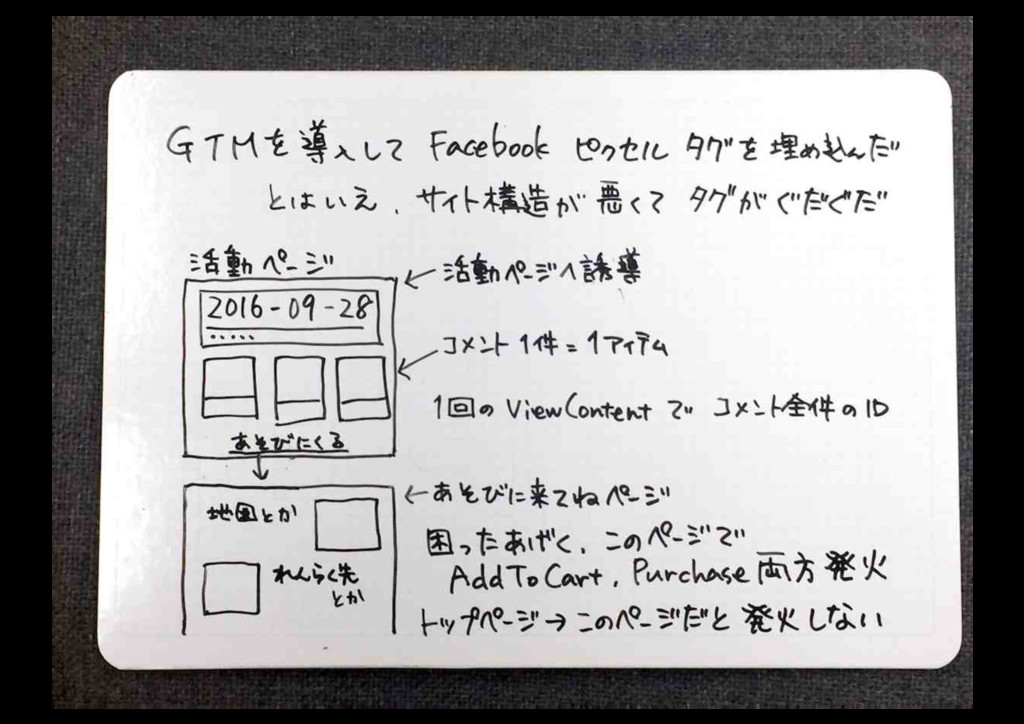 GTMを導入して Facebook ピクセル タグを埋め込んだ
とはいえ、サイト構造が悪くて タグがぐだぐだ
活動ページ
←活動ページへ誘導
2016-09-28
コメント1件=1アイテム
1回のViewContentで コメント全件のID
あそびにくる
←あそびに来てねページ
地図とか
困ったあげく、このページで
AddToCart, Purchase両方発火
れんらく先
とか
トップページ→このページだと発火しない